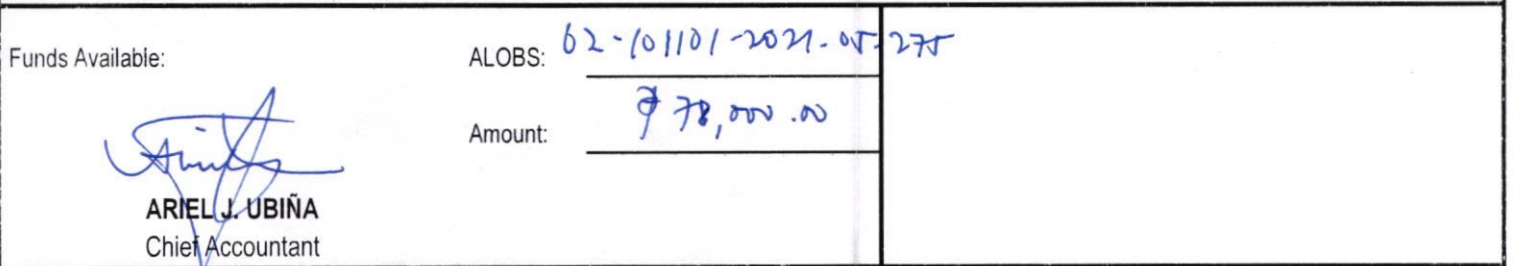 Funds Available:
ALOBS: 02-101101-2021-05-275
Amount: ₱ 78,000.00
ARIEL J. UBIÑA
Chief Accountant